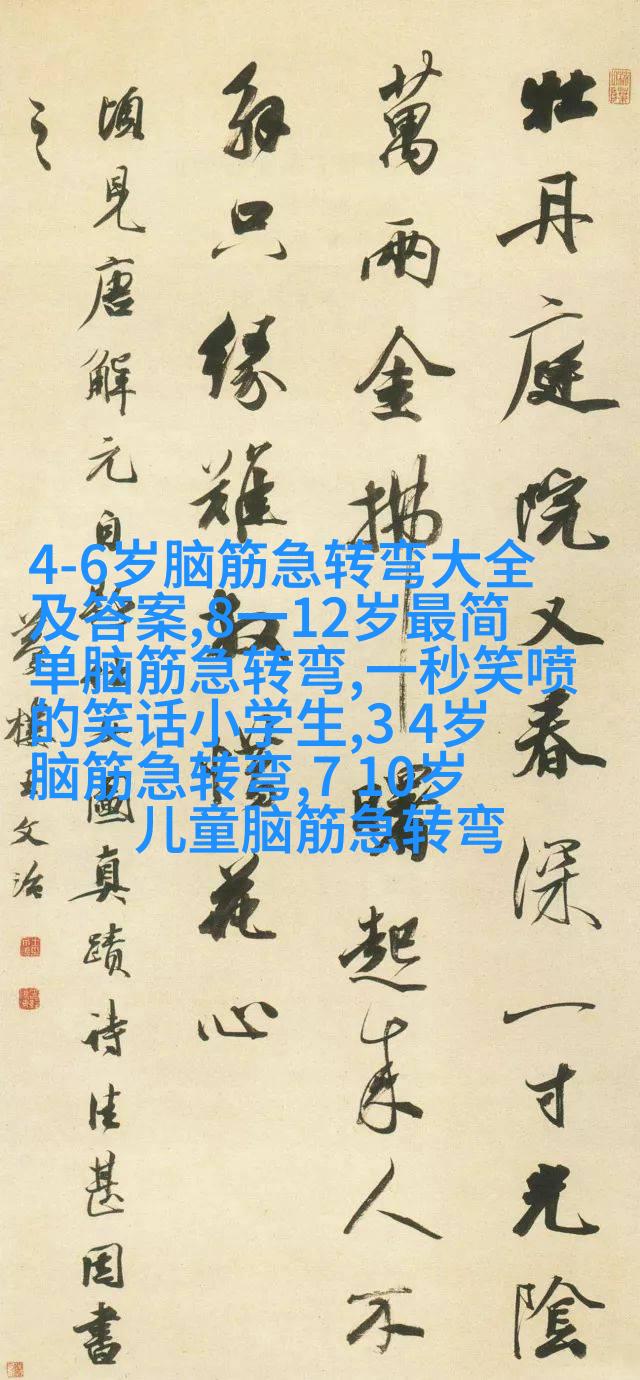 牡丹庭院又春深一寸光陰
萬兩金拂曙起來人不
解只緣難放惜花心
頃見唐解元自圖真蹟詩佳甚因書
之
夢樓王文治
4-6岁脑筋急转弯大全
及答案,8一12岁最简
单脑筋急转弯,一秒笑喷
的笑话小学生,3 4岁
脑筋急转弯,7 10岁
儿童脑筋急转弯